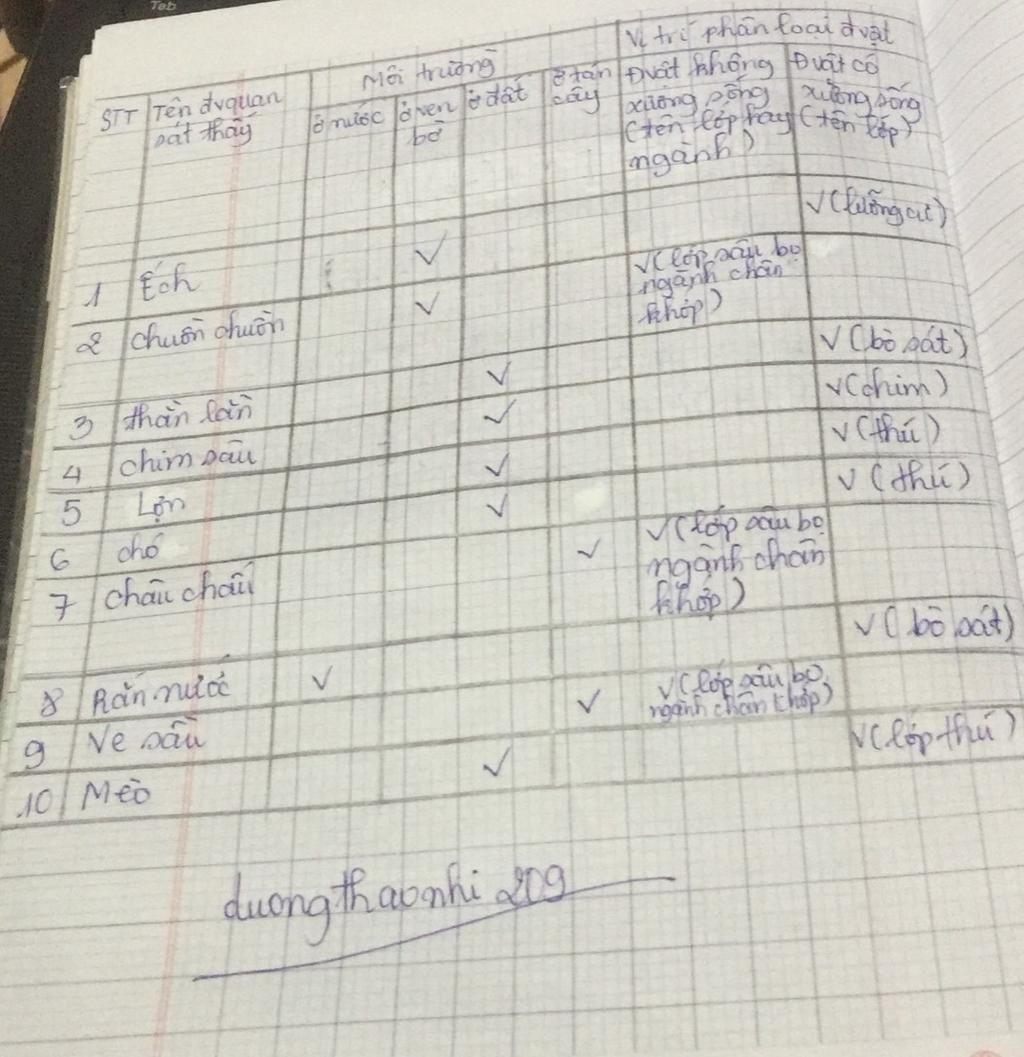 Tab
Vị trí phân loại đvật
Môi trường
STT Tên đvquan sát thấy ở nước ở ven bờ ở đất ở tán cây Đvật không xương sống (tên lớp hay ngành) Đvật có xương sống (tên lớp)
1 Ếch √ √(lưỡng cư)
2 chuồn chuồn √ √(lớp sâu bọ ngành chân khớp)
3 thằn lằn √ √(bò sát)
4 chim sâu √ √(chim)
5 Lợn √ √(thú)
6 chó √ √(thú)
7 châu chấu √ √(lớp sâu bọ ngành chân khớp)
8 Rắn nước √ √(bò sát)
9 Ve sầu √ √(lớp sâu bọ, ngành chân khớp)
10 Mèo √ √(lớp thú)
duongthaonhi 209